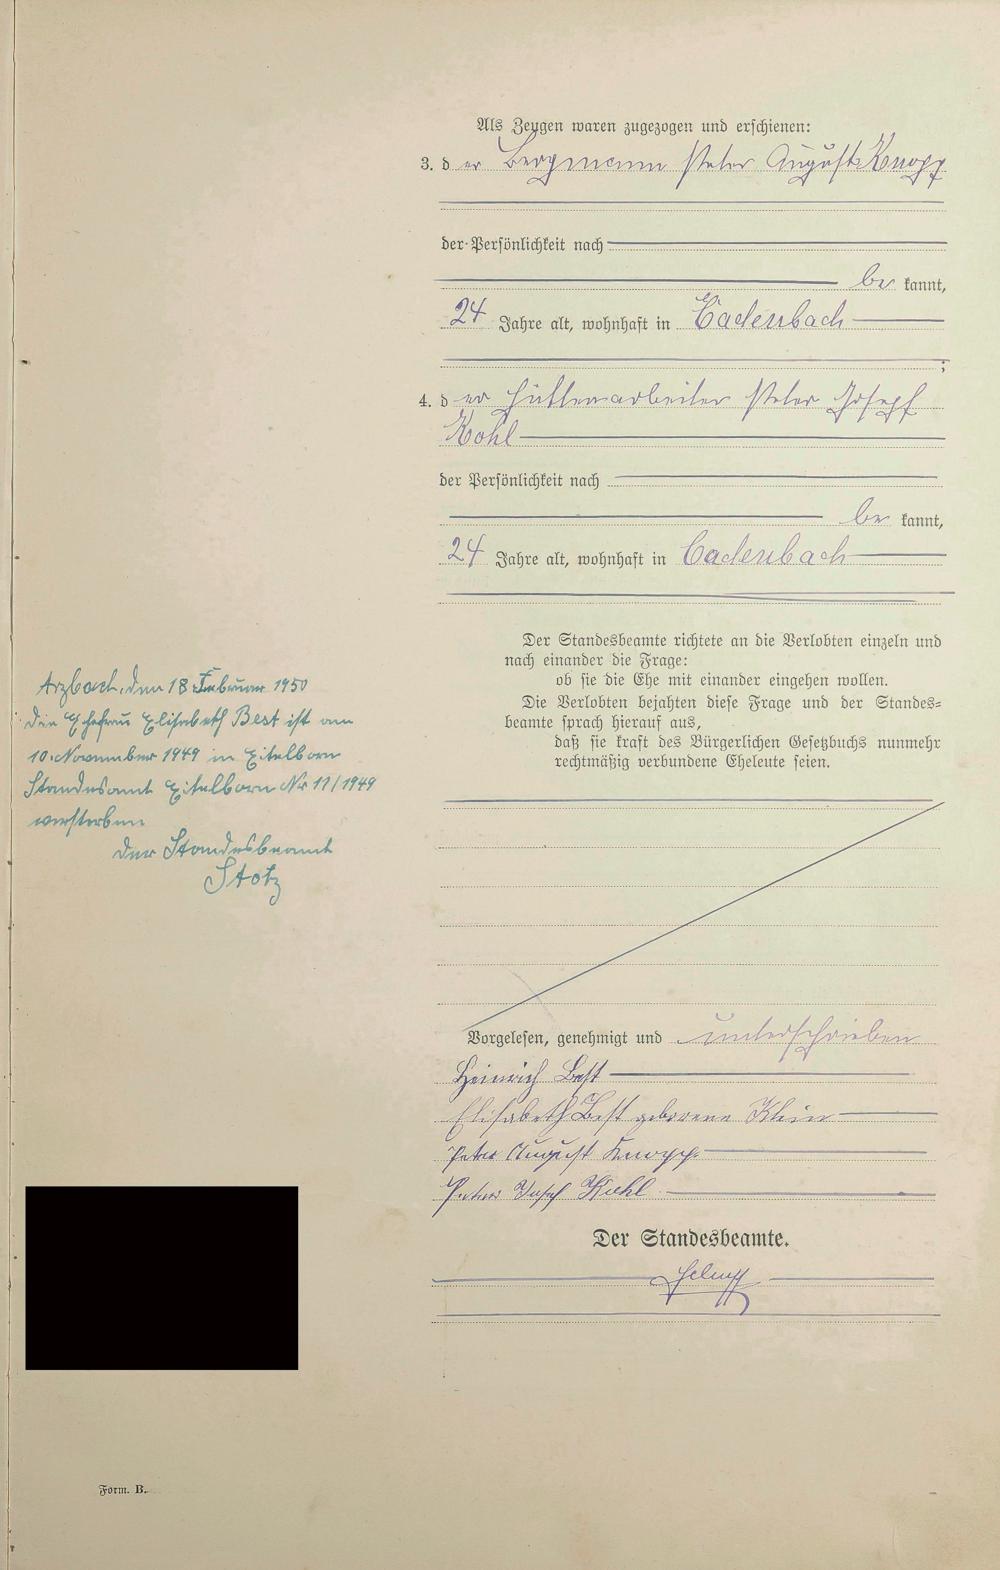 Als Zeugen waren zugezogen und erschienen:
3. der Bergmann Peter August Knopp
der Persönlichkeit nach
be kannt,
24 Jahre alt, wohnhaft in Cadenbach
;
4. der Hüttenarbeiter Peter Josepf
Kohl
der Persönlichkeit nach
be kannt,
24 Jahre alt, wohnhaft in Cadenbach
Der Standesbeamte richtete an die Verlobten einzeln und
nach einander die Frage:
ob sie die Ehe mit einander eingehen wollen.
Die Verlobten bejahten diese Frage und der Standes=
beamte sprach hierauf aus,
daß sie kraft des Bürgerlichen Gesetzbuchs nunmehr
rechtmäßig verbundene Eheleute seien.
Arzbach, den 18 Februar 1950
Die Ehefrau Elisabeth Best ist am
10. November 1949 in Eitelborn
Standesamt Eitelborn Nr 11/1949
verstorben
Der Standesbeamt
Stotz
Vorgelesen, genehmigt und unterschrieben
Heinrich Best
Elisabeth Best geborene Klein
Peter August Knopp
Peter Josef Kohl
Der Standesbeamte.
Form. B.